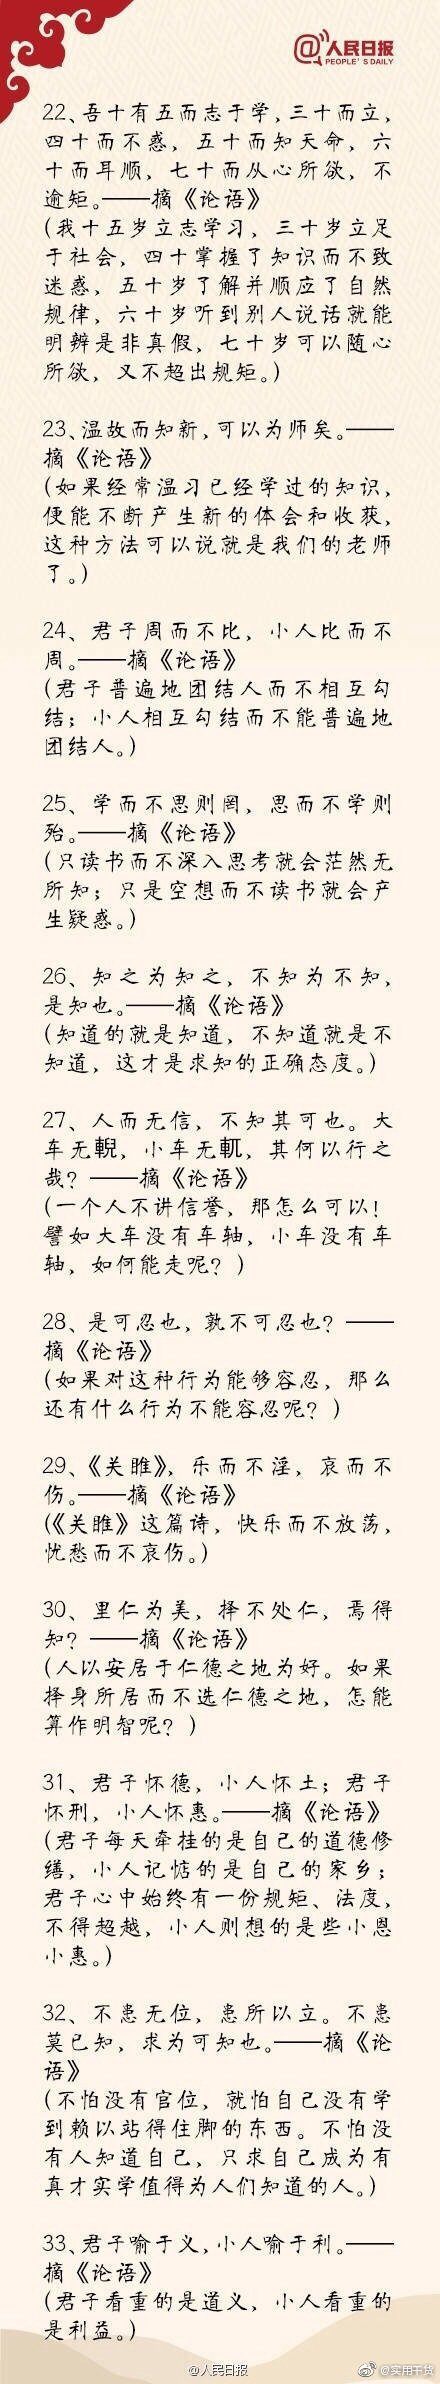 @人民日报
PEOPLE'S DAILY
22、吾十有五而志于学，三十而立，
四十而不惑，五十而知天命，六
十而耳顺，七十而从心所欲，不
逾矩。——摘《论语》
(我十五岁立志学习，三十岁立足
于社会，四十掌握了知识而不致
迷惑，五十岁了解并顺应了自然
规律，六十岁听到别人说话就能
明辨是非真假，七十岁可以随心
所欲，又不超出规矩。)
23、温故而知新，可以为师矣。——
摘《论语》
(如果经常温习已经学过的知识，
便能不断产生新的体会和收获，
这种方法可以说就是我们的老师
了。)
24、君子周而不比，小人比而不
周。——摘《论语》
(君子普遍地团结人而不相互勾
结；小人相互勾结而不能普遍地
团结人。)
25、学而不思则罔，思而不学则
殆。——摘《论语》
(只读书而不深入思考就会茫然无
所知；只是空想而不读书就会产
生疑惑。)
26、知之为知之，不知为不知，
是知也。——摘《论语》
(知道的就是知道，不知道就是不
知道，这才是求知的正确态度。)
27、人而无信，不知其可也。大
车无輗，小车无軏，其何以行之
哉？——摘《论语》
(一个人不讲信誉，那怎么可以！
譬如大车没有车轴，小车没有车
轴，如何能走呢？)
28、是可忍也，孰不可忍也？——
摘《论语》
(如果对这种行为能够容忍，那么
还有什么行为不能容忍呢？)
29、《关雎》，乐而不淫，哀而不
伤。——摘《论语》
(《关雎》这篇诗，快乐而不放荡，
忧愁而不哀伤。)
30、里仁为美，择不处仁，焉得
知？——摘《论语》
(人以安居于仁德之地为好。如果
择身所居而不选仁德之地，怎能
算作明智呢？)
31、君子怀德，小人怀土；君子
怀刑，小人怀惠。——摘《论语》
(君子每天牵挂的是自己的道德修
缮，小人记惦的是自己的家乡；
君子心中始终有一份规矩、法度，
不得超越，小人则想的是些小恩
小惠。)
32、不患无位，患所以立。不患
莫已知，求为可知也。——摘《论
语》
(不怕没有官位，就怕自己没有学
到赖以站得住脚的东西。不怕没
有人知道自己，只求自己成为有
真才实学值得为人们知道的人。)
33、君子喻于义，小人喻于利。——
摘《论语》
(君子看重的是道义，小人看重的
是利益。)
@人民日报
@实用干货